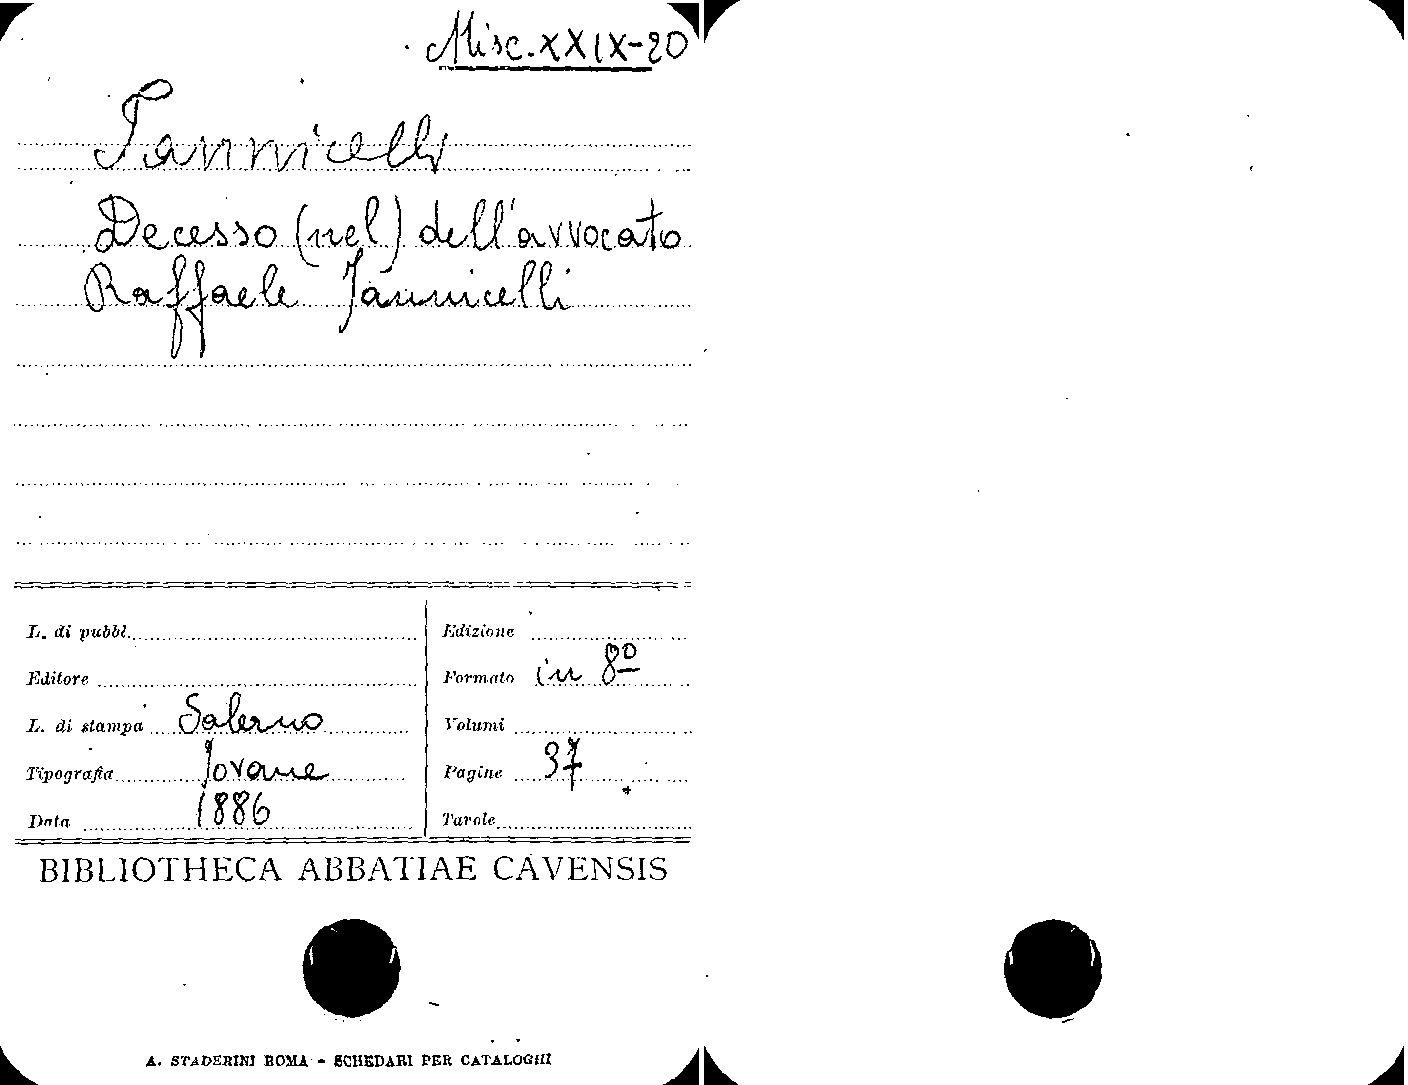 Misc. XXIX-20
Iannicelli
Decesso (nel) dell'avvocato
Raffaele Iannicelli
L. di pubbl.
Editore
L. di stampa Salerno
Tipografia Jovane
Data 1886
Edizione
Formato in 8º
Volumi
Pagine 37
Tavole
BIBLIOTHECA ABBATIAE CAVENSIS
A. STADERINI ROMA - SCHEDARI PER CATALOGHI